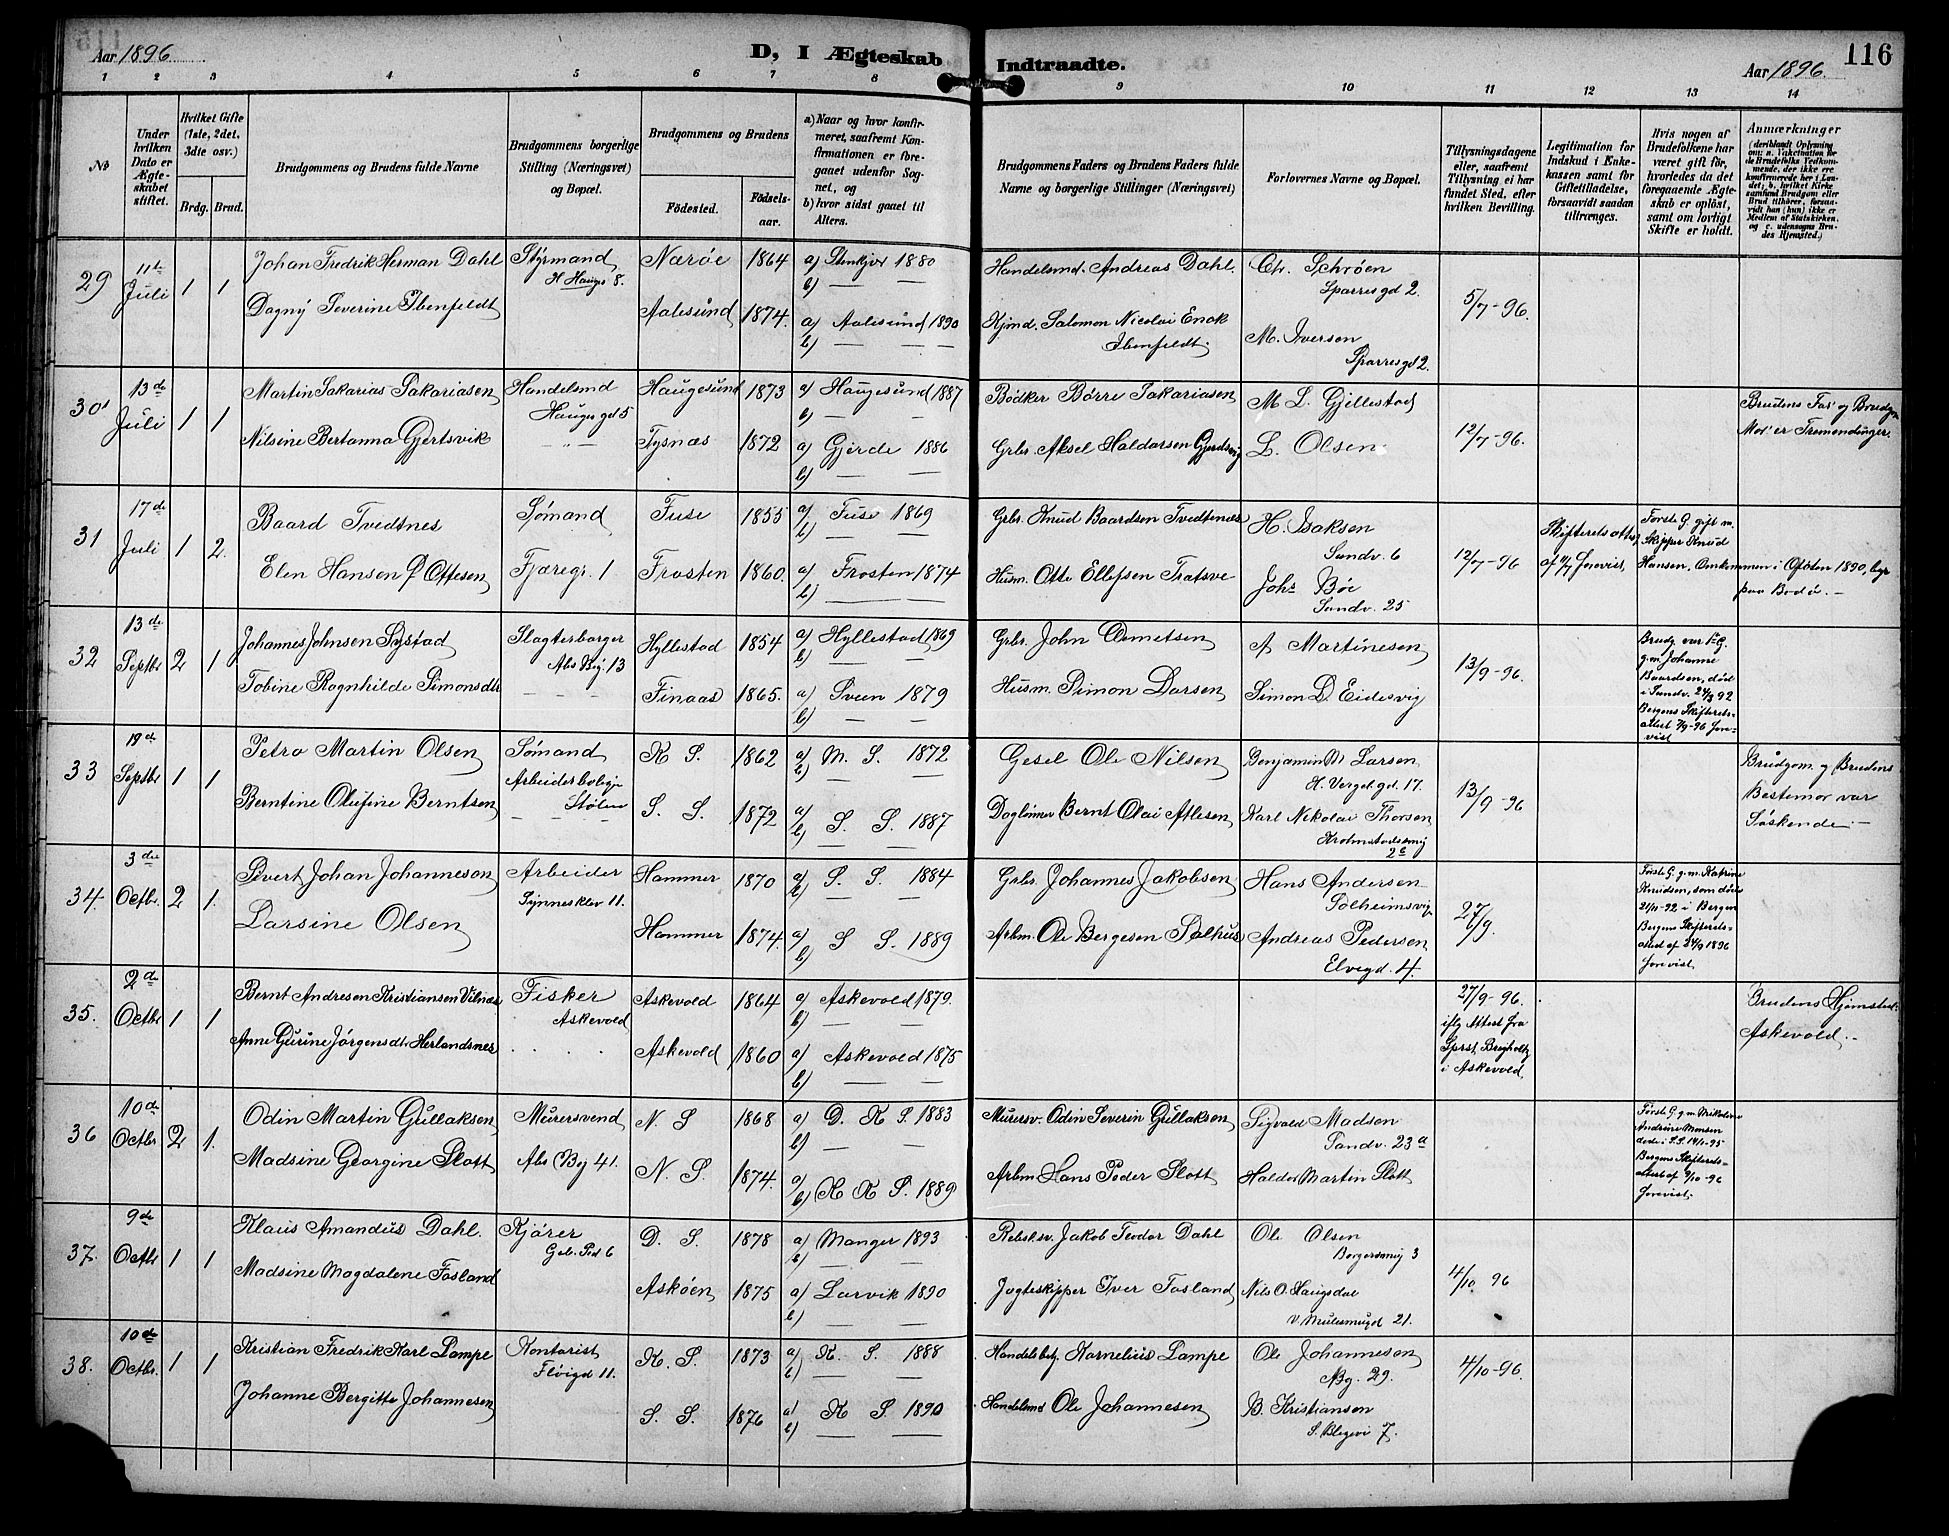 Aar 1896
D, I Ægteskab Indtraadte.
Aar 1896.
116
1 2 3 4 5 6 7 8 9 10 11 12 13 14
No
Under hvilken Dato er Ægteskabet stiftet.
Hvilket Gifte (1ste, 2det, 3die osv.)
Brdg. Brud.
Brudgommens og Brudens fulde Navne
Brudgommens borgerlige Stilling (Næringsvei) og Bopæl.
Brudgommens og Brudens
Fødested.
Fødselsaar.
a) Naar og hvor konfirmeret, saafremt Konfirmationen er foregaaet udenfor Sognet, og
b) hvor sidst gaaet til Alters.
Brudgommens Faders og Brudens Faders fulde Navne og borgerlige Stillinger (Næringsvei)
Forlovernes Navne og Bopæl.
Tillysningsdagene eller, saafremt Tillysning ei har fundet Sted, efter hvilken Bevilling.
Legitimation for Indskud i Enkekassen samt for Giftetilladelse, forsaavidt saadan tiltrænges.
Hvis nogen af Brudefolkene har været gift før, hvorledes da det foregaaende Ægteskab er opløst, samt om lovligt Skifte er holdt.
Anmærkninger
(deriblandt Oplysning om: a. Vakcination for de Brudefolks Vedkommende, der ikke ere konfirmerede her i Landet; b. hvilket Kirkesamfund Brudgom eller Brud tilhører, forsaavidt han (hun) ikke er Medlem af Statskirken, og c. udensogns Brudes Hjemsted.)
29 11te Juli 1 1
Johan Fredrik Herman Dahl Styrmand Nærøe 1864 a) Stenkjer 1880 Handelsmd. Andreas Dahl. Chr. Schrøen
H Haugs 8. b) — — Sparresgd 2. 5/7-96.
Dagny Severine Ibenfeldt Aalesund 1874. a) Aalesund 1890 Kjmd. Salomon Nicolai Enok Ibenfeldt. M. Iversen
b) — — — Sparresgd 2.
30 13de Juli 1 1
Martin Sakarias Sakariasen Handelsmd Haugesund 1873 a) Haugesund 1887 Bødker Børre Sakariasen M. L. Gjellestad
Hauges gd 5 b) — — 12/7-96. Brudens Far og Brudgm Mor er Tremendinger.
Nilsine Bertanna Gjertsvik Tysnæs 1872 a) Gjerde 1886 Grbr. Aksel Haldorsen Gjerdsvig L. Olsen
b) — —
31 17de Juli 1 2.
Baard Tvedtnes Sømand Fuse 1855 a) Fuse 1869 Grbr. Knud Baardsen Tvedtenæs H. Isaksen
Sandv. 6 12/7-96 Første G. gift m. Skipper Knud Hansen, Omkommen i Ofoten 1890, paa Bodø. —
Elen Hansen f Ottesen Fjæregr. 1 Frosten 1860. a) Frosten 1874 Husm. Otte Ellefsen Joh: Bøe
b) — — Sandv. 25
32 13de Septbr 2 1
Johannes Johnsen Systad Slagterborger Hyllestad 1854 a) Hyllestad 1869 Grbr. John A Martinesen
Abs By. 13 b) — — 13/9-96. Brudg. var 1ste G. g.m. Johanne Baardsen, død i Sandv. 24/3 92 Bergens Skifteretsattest 7/9-96 forevist
Tobine Ragnhilde Simonsdtr Finaas 1865. a) Sveen 1879 Husm. Simon Larsen Simon D. Eidesvig
b) — —
33 19de Septbr 1 1
Petro Martin Olsen Sømand K. S. 1862 a) M. S. 1872 Gesel Ole Nilsen Benjamin M Larsen
Arbeiderbolige Stølen b) — — H. Verg.gd. 17. 13/9-96 Brudgom. og Brudens Bestemor var Søskende. —
Berntine Olufine Berntsen S. S. 1872 a) S. S. 1887 Daglønner Bernt Olai Atlesen Karl Nikolai Thorsen
b) — — Krohnstadsvei 2c
34. 3die Octbr. 2 1.
Sivert Johan Johannesen Arbeider Hammer 1870 a) S. S. 1884 Grbr. Johannes Jakobsen Hans Andersen
Synnesklev 11. b) — — Solheimsvig 27/9. Første G. g.m. Katrine Knudsen, som døde 21/11-92 i Bergen Bergens Skifteretsattest af 24/9 1896 forevist
Larsine Olsen Hammer 1874. a) S S. 1889 Arbm. Ole Bergesen Salhus Andreas Pedersen
b) — — Elvegd. 4.
35. 2de Octbr 1 1
Bernt Andresen Kristiansen Vilnæs Fisker Askevold 1864 a) Askevold 1879. 27/9-96. iflg Attest fra i Askevold. Brudens Hjemsted: Askevold. —
Askevold b) — —
Anne Gurine Jørgensdtr Herlandsnes Askevold 1860 a) Askevold 1875
b) — —
36 10de Octbr 2 1.
Odin Martin Gullaksen Murersvend N. S 1868 a) D. K S. 1883 Murersv. Odin Severin Gullaksen Sigvald Madsen
Abs By 41. b) — Sandv. 23 a Første G. g.m. Nikoline Andrine Monsen døde i S.S. 14/1-95 Bergens Skifteretsattest af 9/10-96 forevist.
Madsine Georgine Slott N. S. 1874. a) K K S. 1889 Arbm Hans Peder Slott Haldor Martin Slott
b) — —
37. 9de Octbr 1 1
Klaus Amandus Dahl. Kjører D. S. 1878 a) Manger 1893 Rebsl.sv. Jakob Teodor Dahl Ole Olsen
Geb. Ped 6 b) — — 3 4/10 96
Madsine Magdalene Fosland Askøen 1875 a) Larvik 1890 Jagteskipper Iver Fosland Nils O. Haugsdal
b) — — V. Mulesmugd 21.
38. 10de Octbr. 1 1
Kristian Fredrik Karl Lampe Kontorist K. S. 1873 a) K. S. 1888 Handelsbetj. Kornelius Lampe Ole Johannesen
Fløigd 11. b) — — Ng. 29. 4/10-96.
Johanne Bergitte Johannesen S. S. 1876 a) K S. 1890 Handelsmd Ole Johannesen B. Kristiansen
b) — — S. Blegevi 7.